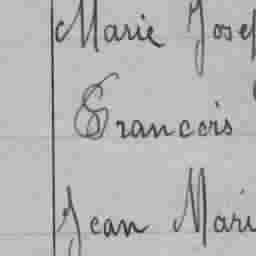 Marie Josep
Francois
Jean Marie